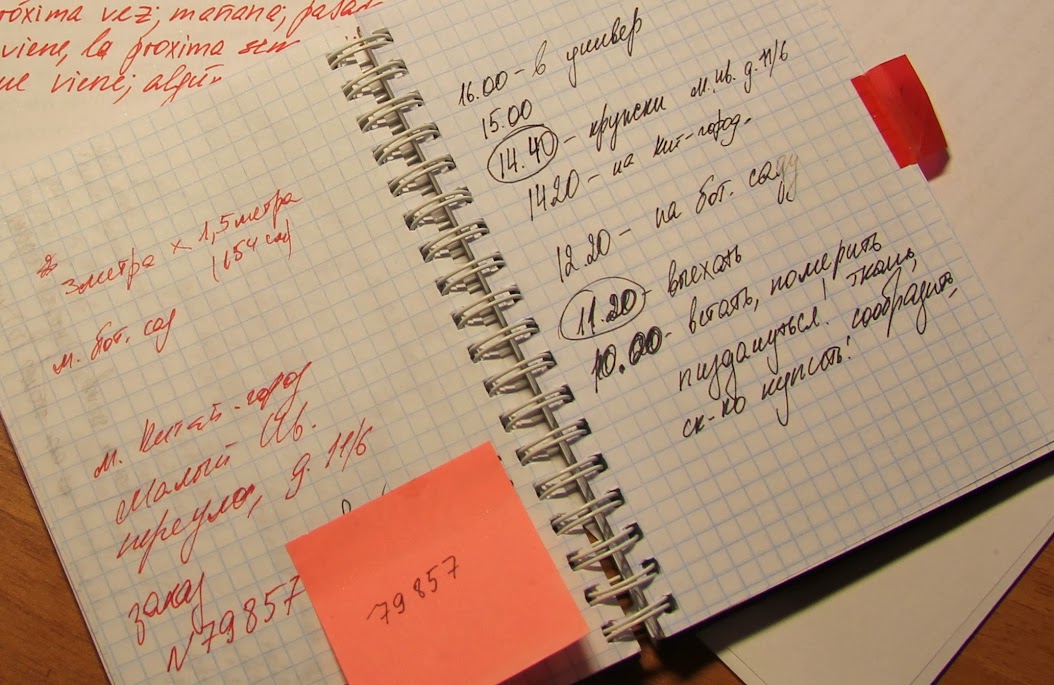 róxima vez; mañana; pasa
viene, la proxima sem
ue viene; algún
3метра x 1,5метра
(154 см)
м. бот. сад
м. Китай-город
Малый Ив.
переулок, д. 11/6
заказ
N79857
79857
16.00 - в универ
15.00
14.40 - крупски м. ив. д. 11/6
14 20 - на кит-город.
12 20 - на бот. саду
11.20 - выехать
10.00 - встать, померить
ткань,
пиздануться! сообразить,
ск-ко купить!